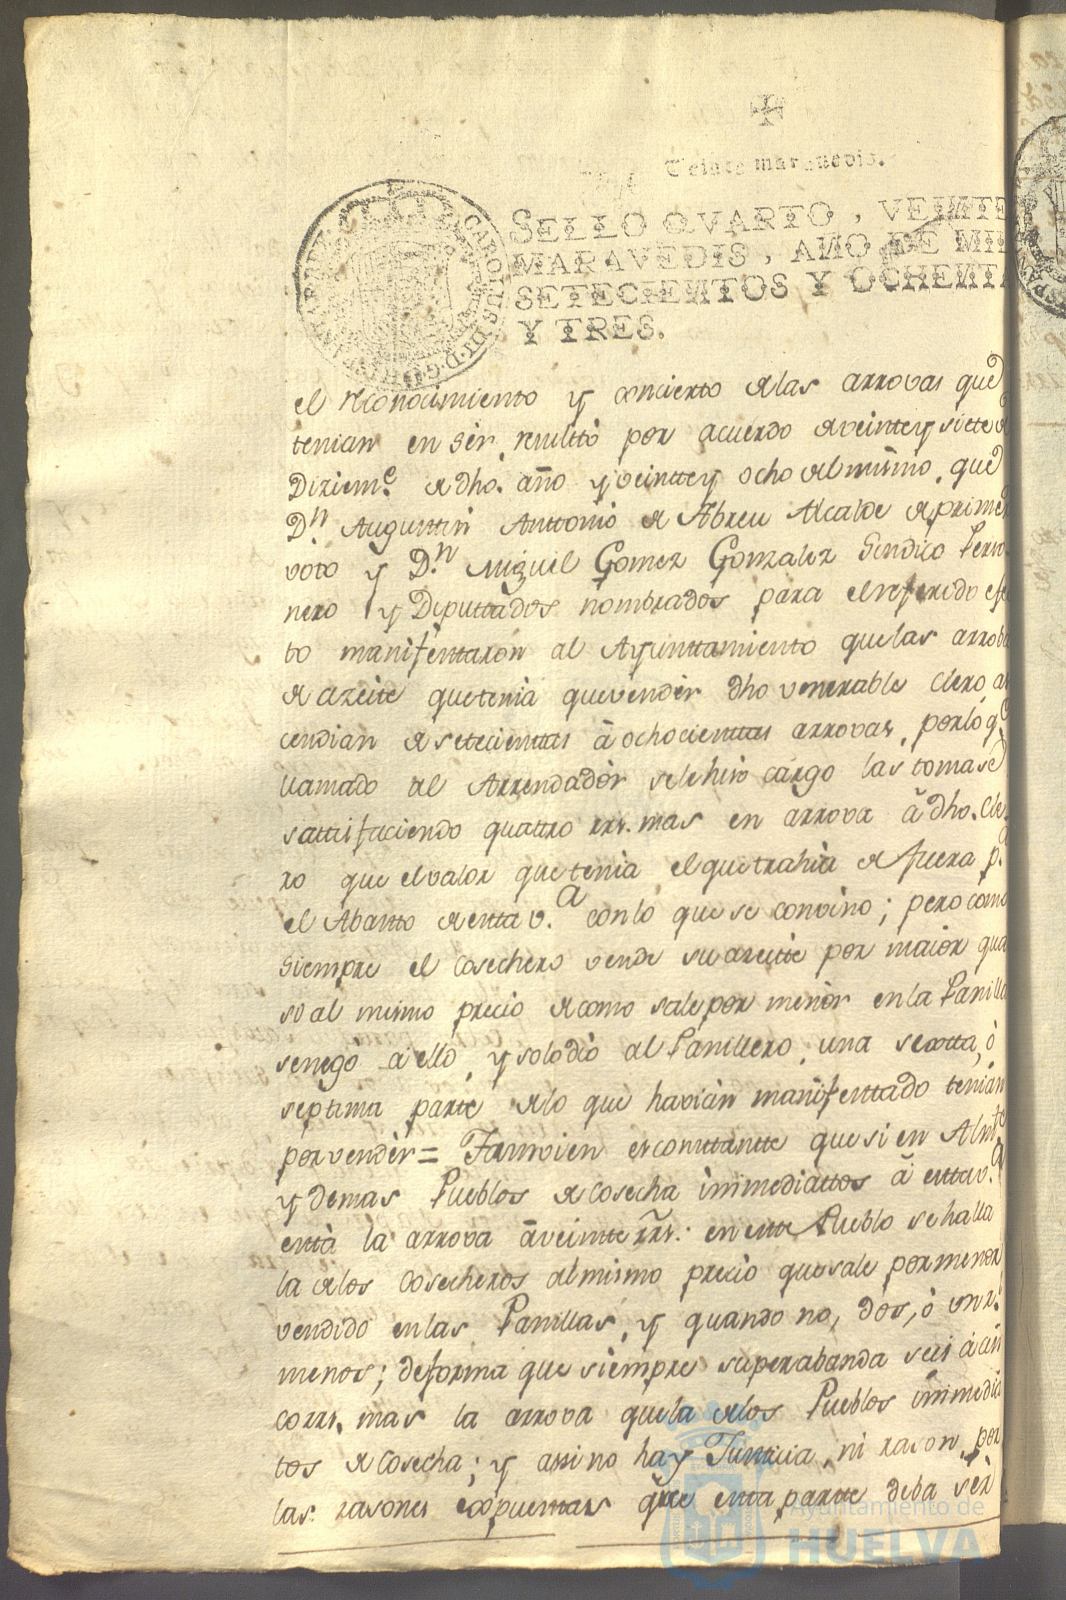 Veinte maravedis.
SELLO QVARTO, VEINTE
MARAVEDIS, AÑO DE MIL
SETECIENTOS Y OCHENTA
Y TRES.
CAROLUS III D. G. HISPANIAR. REX
el rconocimiento y concierto de las arrovas que
tenian en ser, resultó por acuerdo de veinte y siete de
Diziem.e de dho. año y veinte y ocho del mismo, que
D.n Augustin Antonio de Abreu Alcalde de primer
voto y D.n Miguel Gomez Gonzalez Sindico Perso-
nero y Diputtados nombrados para el referido efec
to manifestaron al Ayunttamiento que las arrobas
de azeite que tenia que vender dho venerable Clero as
cendian de setecientas â ochocienttas arrovas, por lo q.e
llamado al Arrendadór se le hizo cargo las tomase
sattisfaciendo quattro rrs. mas en arrova â dho. Cle-
ro que el valor que tenia el que trahia de fuera p.a
el Abasto de esta v.a con lo que se convino; pero como
siempre el cosechero vende su aceitte por maior qua
si al mismo precio de como sale por menòr en la Panilla
se nego á ello, y solo dió al Panillero una sexta, ò
septima parte de lo que havian manifesttado tenian
por vendér = Tamvien es constante que si en
y demas Pueblos de cosecha immediattos â esta v.a
está la arrova â veinte rrs: en este Pueblo se halla
la de los Cosecheros al mismo precio que sale por menor
vendido en las Panillas, y quando no, dos, ò un r.l
menos; de forma que siempre superabanda seis á
co rrs. mas la arrova que la de los Pueblos immedia
tos de cosecha; y assi no hay Justicia, ni razon por
las rasones expuestas que esta partte deba ser
Ayuntamiento de
HUELVA